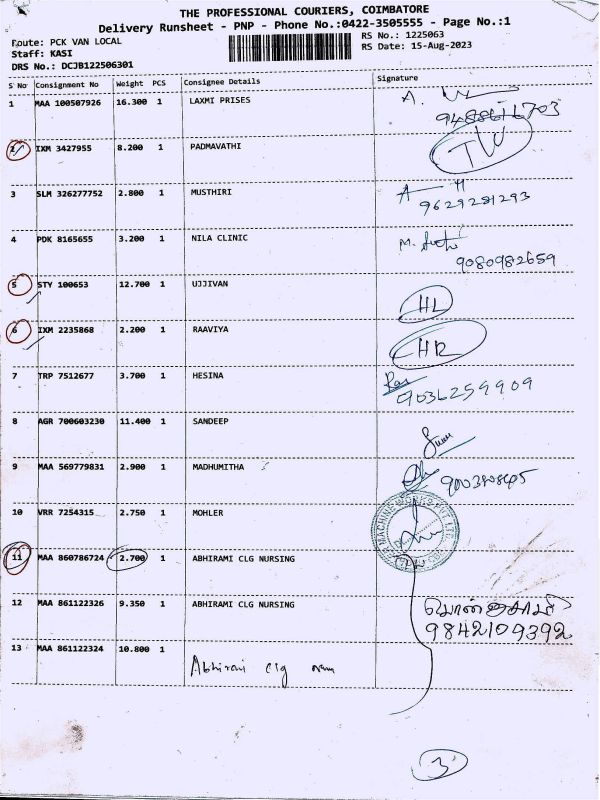 THE PROFESSIONAL COURIERS, COIMBATORE
Delivery Runsheet - PNP - Phone No.:0422-3505555 - Page No.:1
Route: PCK VAN LOCAL
RS No.: 1225063
Staff: KASI
RS Date: 15-Aug-2023
DRS No.: DCJB122506301
S No Consignment No Weight PCS Consignee Details Signature
1 MAA 100507926 16.300 1 LAXMI PRISES
2 IXM 3427955 8.200 1 PADMAVATHI
3 SLM 326277752 2.800 1 MUSTHIRI
9629281293
4 PDK 8165655 3.200 1 NILA CLINIC
9080982659
5 STY 100653 12.700 1 UJJIVAN HL
6 IXM 2235868 2.200 1 RAAVIYA HR
7 TRP 7512677 3.700 1 HESINA
9036259909
8 AGR 700603230 11.400 1 SANDEEP
9 MAA 569779831 2.900 1 MADHUMITHA
10 VRR 7254315 2.750 1 MOHLER
11 MAA 860786724 2.700 1 ABHIRAMI CLG NURSING
12 MAA 861122326 9.350 1 ABHIRAMI CLG NURSING
9842109392
13 MAA 861122324 10.800 1
Abhirami clg
3